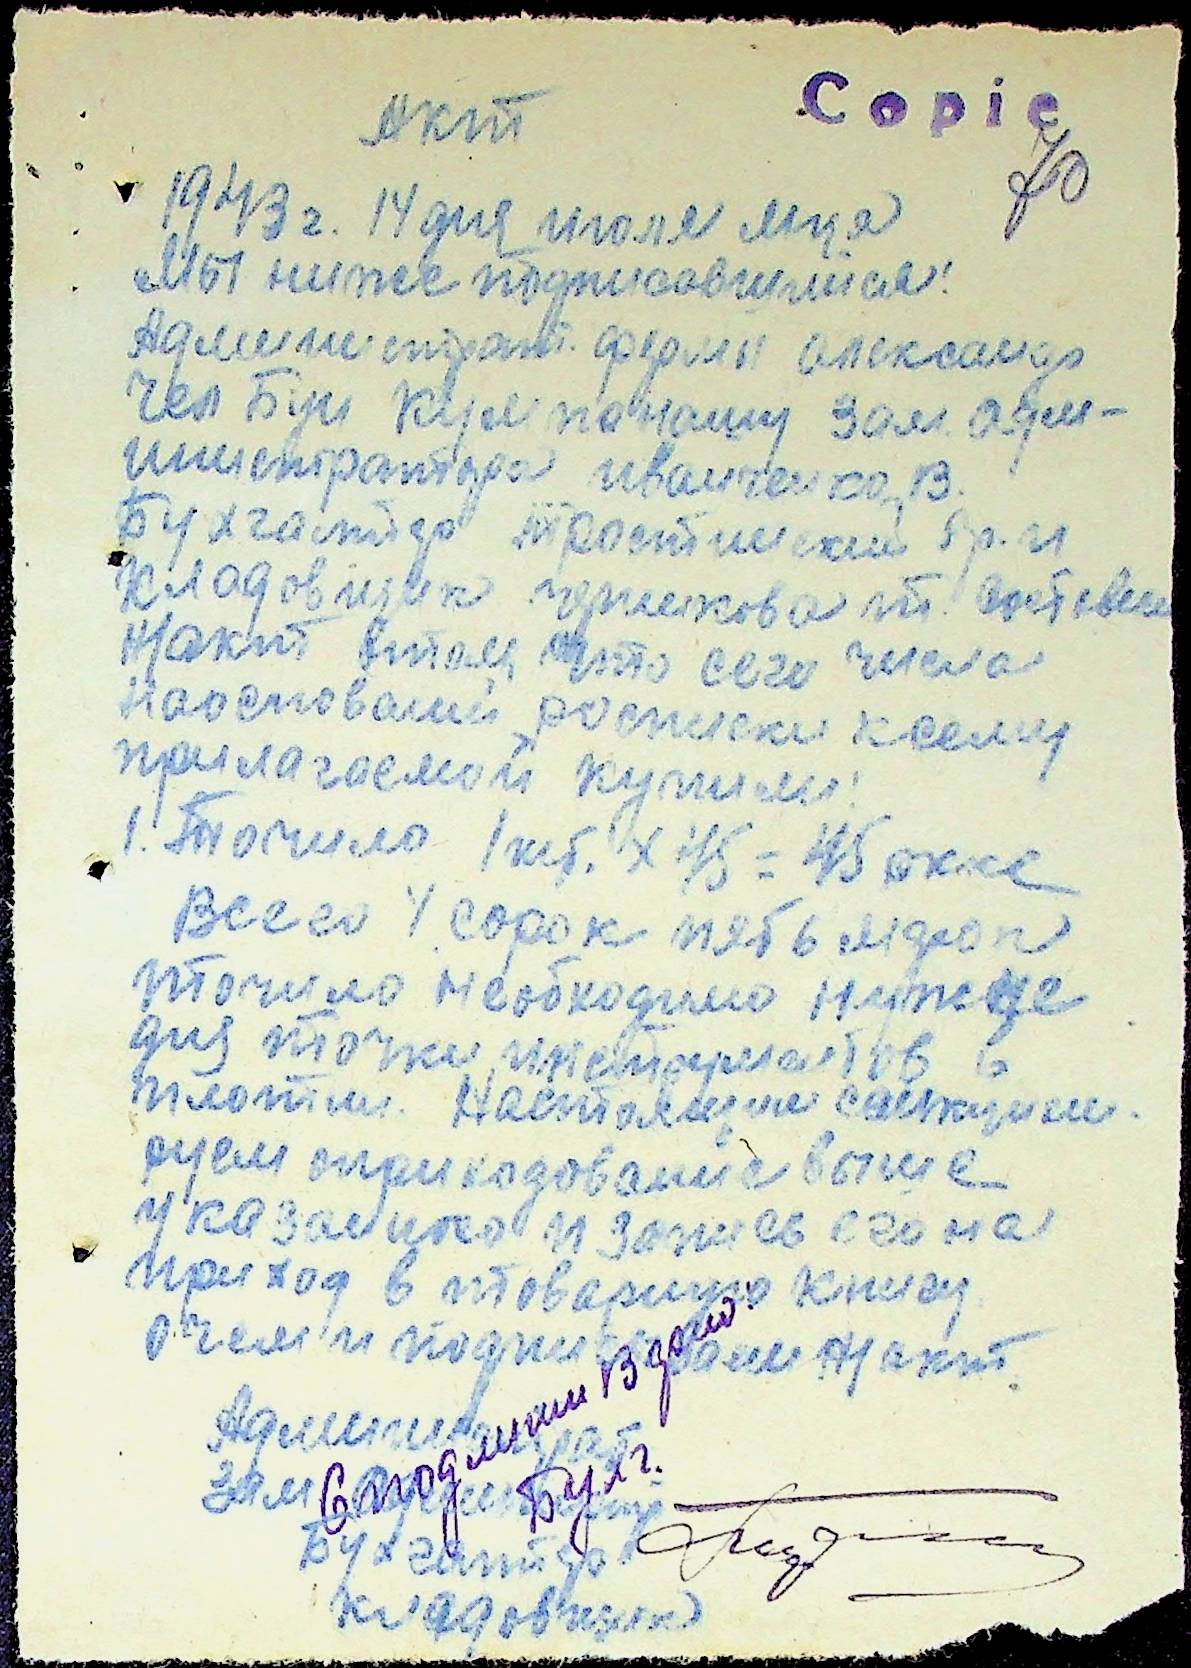 Copie
Акт
70
1943 г. 14 дня июля м-ця
Мы ниже подписавшийся:
Администрат. фермы Александр
чел Бун Кум Зам. адм-
министратора Иванченко В.
Бухгалтер Тростинский Гр. и
Кладовщик т. составел
н/акт втом что сего числа
наоснований росписки ксему
прилагаемой купили:
1. Точило 1 шт. х 45 = 45
Всего 4 сорок пять марок
точило необходимо нужне
для точки инструментов в
Настоящим
руем оприходование выше
указанно и запись его на
приход в товарную книгу
о чем и подписываем н/акт.
Администрат
Зам Администр
Бухгалтер
Кладовщик
С подлиним Вэрно:
Бухг.